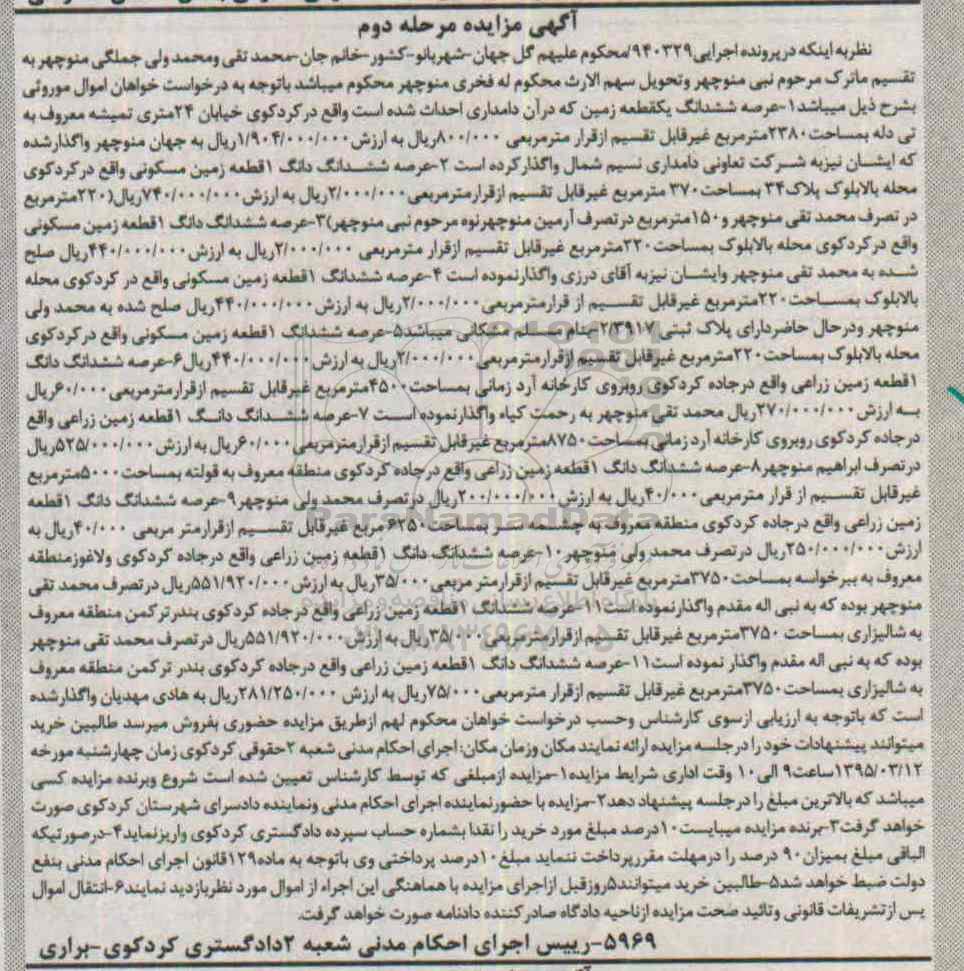 آگهی مزایده مرحله دوم
نظر به اینکه در پرونده اجرایی۹۴۰۳۲۹/محکوم علیهم گل جهان-شهربانو-کشور-خانم جان-محمد تقی ومحمد ولی جملگی منوچهر به
تقسیم ماترک مرحوم نبی منوچهر وتحویل سهم الارث محکوم له فخری منوچهر محکوم میباشد باتوجه به درخواست خواهان اموال موروثی
بشرح ذیل میباشد۱-عرصه ششدانگ یکقطعه زمین که درآن دامداری احداث شده است واقع درکردکوی خیابان ۲۴متری تمیشه معروف به
تی دله بمساحت۲۳۸۰مترمربع غیرقابل تقسیم ازقرار مترمربعی ۸۰۰/۰۰۰ریال به ارزش۱/۹۰۴/۰۰۰/۰۰۰ریال به جهان منوچهر واگذارشده
که ایشان نیزبه شرکت تعاونی دامداری نسیم شمال واگذارکرده است ۲-عرصه ششدانگ دانگ ۱قطعه زمین مسکونی واقع درکردکوی
محله بالابلوک پلاک۳۴ بمساحت۳۷۰ مترمربع غیرقابل تقسیم ازقرارمترمربعی۲/۰۰۰/۰۰۰ریال به ارزش۷۴۰/۰۰۰/۰۰۰ریال(۲۲۰مترمربع
در تصرف محمد تقی منوچهر و۱۵۰مترمربع درتصرف آرمین منوچهرنوه مرحوم نبی منوچهر)۳-عرصه ششدانگ دانگ ۱قطعه زمین مسکونی
واقع درکردکوی محله بالابلوک بمساحت۲۲۰مترمربع غیرقابل تقسیم ازقرار مترمربعی ۲/۰۰۰/۰۰۰ریال به ارزش۴۴۰/۰۰۰/۰۰۰ریال صلح
شده به محمد تقی منوچهر وایشان نیزبه آقای درزی واگذارنموده است ۴-عرصه ششدانگ ۱قطعه زمین مسکونی واقع در کردکوی محله
بالابلوک بمساحت۲۲۰مترمربع غیرقابل تقسیم از قرارمترمربعی۲/۰۰۰/۰۰۰ریال به ارزش۴۴۰/۰۰۰/۰۰۰ریال صلح شده به محمد ولی
منوچهر ودرحال حاضردارای پلاک ثبتی ۲/۳۹۱۷بنام مسلم مشکانی میباشد۵-عرصه ششدانگ ۱قطعه زمین مسکونی واقع درکردکوی
محله بالابلوک بمساحت۲۲۰مترمربع غیرقابل تقسیم ازقرارمترمربعی۲/۰۰۰/۰۰۰ریال به ارزش۴۴۰/۰۰۰/۰۰۰ریال۶-عرصه ششدانگ دانگ
۱قطعه زمین زراعی واقع درجاده کردکوی روبروی کارخانه آرد زمانی بمساحت۴۵۰۰مترمربع غیرقابل تقسیم ازقرارمترمربعی۶۰/۰۰۰ریال
به ارزش۲۷۰/۰۰۰/۰۰۰ریال محمد تقی منوچهر به رحمت کیاه واگذارنموده است ۷-عرصه ششدانگ دانگ ۱قطعه زمین زراعی واقع
درجاده کردکوی روبروی کارخانه آردزمانی بمساحت۸۷۵۰مترمربع غیرقابل تقسیم ازقرارمترمربعی۶۰/۰۰۰ریال به ارزش۵۲۵/۰۰۰/۰۰۰ریال
درتصرف ابراهیم منوچهر۸-عرصه ششدانگ دانگ ۱قطعه زمین زراعی واقع درجاده کردکوی منطقه معروف به قولته بمساحت۵۰۰۰مترمربع
غیرقابل تقسیم از قرار مترمربعی۴۰/۰۰۰ریال به ارزش۲۰۰/۰۰۰/۰۰۰ریال درتصرف محمد ولی منوچهر۹-عرصه ششدانگ دانگ ۱قطعه
زمین زراعی واقع درجاده کردکوی منطقه معروف به چشمه سر بمساحت۶۲۵۰مربع غیرقابل تقسیم ازقرارمتر مربعی ۴۰/۰۰۰ریال به
ارزش۲۵۰/۰۰۰/۰۰۰ریال درتصرف محمد ولی منوچهر۱۰-عرصه ششدانگ دانگ ۱قطعه زمین زراعی واقع درجاده کردکوی ولاغوزمنطقه
معروف به ببرخواسه بمساحت۳۷۵۰مترمربع غیرقابل تقسیم ازقرارمتر مربعی۳۵/۰۰۰ریال به ارزش۵۵۱/۹۲۰/۰۰۰ریال درتصرف محمد تقی
منوچهر بوده که به نبی اله مقدم واگذارنموده است۱۱-عرصه ششدانگ ۱قطعه زمین زراعی واقع درجاده کردکوی بندرترکمن منطقه معروف
به شالیزاری بمساحت ۳۷۵۰مترمربع غیرقابل تقسیم ازقرارمترمربعی۳۵/۰۰۰ریال به ارزش۵۵۱/۹۲۰/۰۰۰ریال درتصرف محمد تقی منوچهر
بوده که به نبی اله مقدم واگذار نموده است۱۱-عرصه ششدانگ دانگ ۱قطعه زمین زراعی واقع درجاده کردکوی بندر ترکمن منطقه معروف
به شالیزاری بمساحت۳۷۵۰مترمربع غیرقابل تقسیم ازقرار مترمربعی۷۵/۰۰۰ریال به ارزش ۲۸۱/۲۵۰/۰۰۰ریال به هادی مهدیان واگذارشده
است که باتوجه به ارزیابی ازسوی کارشناس وحسب درخواست خواهان محکوم لهم ازطریق مزایده حضوری بفروش میرسد طالبین خرید
میتوانند پیشنهادات خود را درجلسه مزایده ارائه نمایند مکان وزمان مکان:اجرای احکام مدنی شعبه ۲حقوقی کردکوی زمان چهارشنبه مورخه
۱۳۹۵/۰۳/۱۲ساعت۹ الی۱۰ وقت اداری شرایط مزایده۱-مزایده ازمبلغی که توسط کارشناس تعیین شده است شروع وبرنده مزایده کسی
میباشد که بالاترین مبلغ را درجلسه پیشنهاد دهد۲-مزایده با حضورنماینده اجرای احکام مدنی ونماینده دادسرای شهرستان کردکوی صورت
خواهد گرفت۳-برنده مزایده میبایست۱۰درصد مبلغ مورد خرید را نقدا بشماره حساب سپرده دادگستری کردکوی واریزنماید۴-درصورتیکه
الباقی مبلغ بمیزان۹۰ درصد را درمهلت مقررپرداخت ننماید مبلغ۱۰درصد پرداختی وی باتوجه به ماده۱۲۹قانون اجرای احکام مدنی بنفع
دولت ضبط خواهد شد۵-طالبین خرید میتوانند۵روزقبل ازاجرای مزایده با هماهنگی این اجراء از اموال مورد نظربازدید نمایند۶-انتقال اموال
پس ازتشریفات قانونی وتائید صحت مزایده ازناحیه دادگاه صادرکننده دادنامه صورت خواهد گرفت.
۵۹۶۹-رییس اجرای احکام مدنی شعبه ۲دادگستری کردکوی-براری